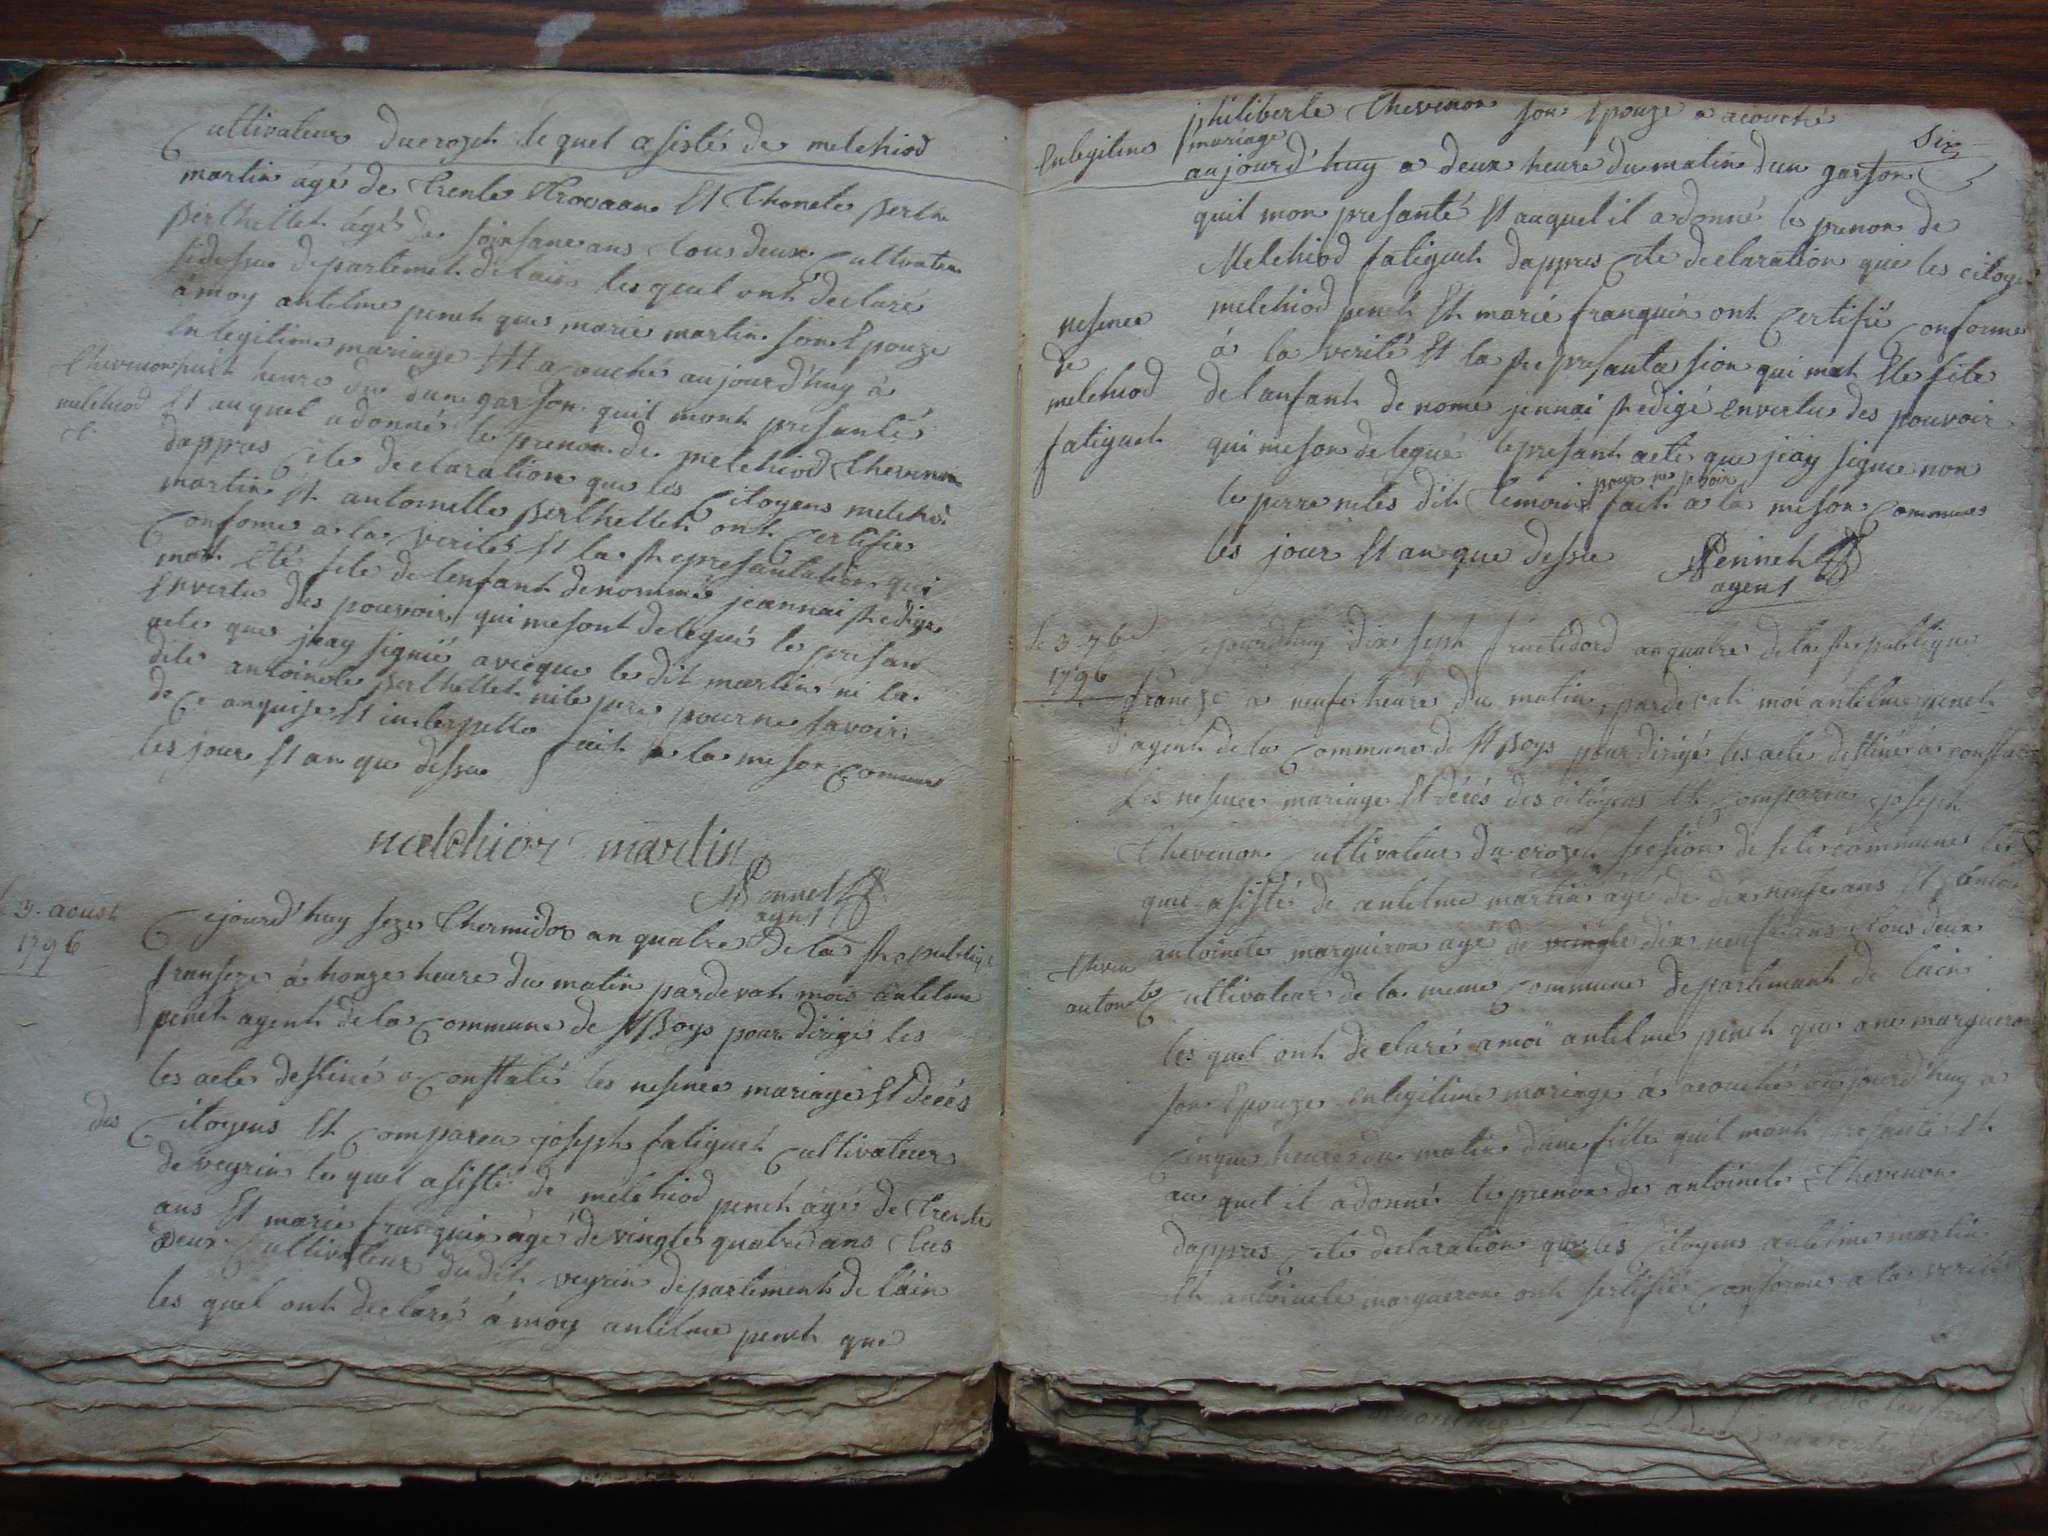 Cultivateur ducrozet le quel asisté de melchiod
martin agé de trente trocaan Et thonete perth
perthellet agé de soixsane ans tous deux Cultivateu
sidessu departemet delain les quel ont declaré
a moy antelme penet que marie martin son Epouze
En legitime mariage Et acouché aujourd'huy à
thevenon
melchiod
huit heure du dun garson quil mont presanté
Et auquel adonné le prenon de melchiod thevenon
dappres Cete declaration que les Citoyens melchio
martin Et antoinette perthellet ont Certifié
Conforme a la verité Et la Representation qui
mat Eté fete de lenfant denommé jeannai Redige
Envertu des pouvoir qui mesont delegué le presan
acte que jeay signié avecque le dit martin ni la
dite antoinete perthellet nile pere pour ne savoir
de Ce anquise Et interpelle fait a la meson Commune
les jour Et an que dessu
melchior martin
APennet
agent
le 3. aoust
1796
Cejourd'huy seze thermidor an quatre De la Republiq
franseze à honze heure du matin pardevat moi antelme
penet agent de la Commune de St Boys pour dirigé les
les acte destiné a Constaté les nesence mariage Et décés
des Citoyens Et Comparu joseph fatiguet Cultivateur
de veyrin le quel asisté de melchiod penet ágé de trente
ans Et marie franquin agé de vingte quatre ans tus
deux Cultivateur du dit veyrin departiment de lain
les quel ont declaré á moy antelme penet que
philiberte thevenon son Epouze a acouché
Enlegitime mariage
Six
aujourd'huy a deux heure du matin dun garson
quil mon presanté Et auquel il a donné le prenon de
Melchiod fatiguet dappres Cete declaration que les citoye
nesence
de
melchiod
fatiguet
melchiod penet Et marie franquin ont Certifié Conforme
á la verité Et la Represanta sion qui mat Ete fete
de lanfant de nome jennai Redigé Envertu des pouvoir
qui meson delegué le presant acte que jeay signé non
le perre niles dit temoin pour ne savoir fait a la meson Commune
les jour Et an que dessu
APennet
agent
le 3 7bre
1796
Cejourdhuy dix sept fructidord an quatre de la Republique
franceze a neuf heure du matin pardevat moi antelme penet
agent de la Commune de St Boys pour dirigé les acte destiné à constaté
Les nesence mariage Et décés des citoyens Et Comparu joseph
thevenon Cultivateur du crozet section de sete commune le
quel asisté de antelme martin agé de dix neufe ans Et antoi
antoinete marguiron agé de vingte dix neufe ans tous deux
theve
antonete
Cultivateur de la meme Commune departimant de lain
les quel ont declaré amoi antelme penet que ane margueron
son Epouze enlegitime mariage á acouché aujourd'huy a
Cinque heure du matin dune fille quil mont presanté Et
au quel il adonné le prenon de antoinete thevenon
dappres Cete declaration que les Citoyens antelme martin
Et antoinete margueron ont sertifié Conforme a la verité